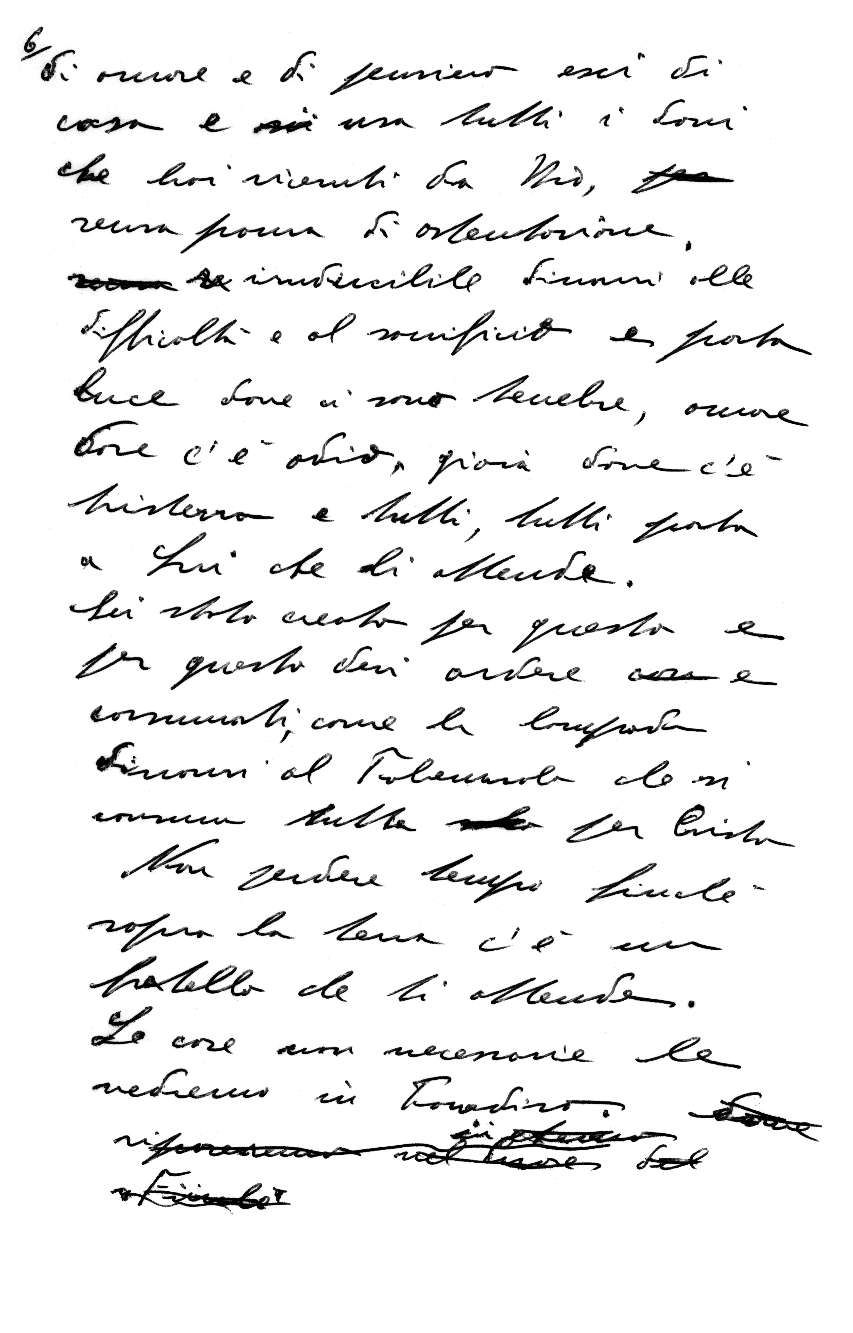 6/
di amore e di pensiero esci di
casa e usa tutti i doni
che hai ricevuti da Dio,
senza posa di ostentazione.
irriducibile dinanzi alle
difficoltà e al sacrificio e porta
luce dove ci sono tenebre, amore
dove c'è odio, gioia dove c'è
tristezza e tutti, tutti porta
a Lui che ti attende.
Sei stato creato per questo e
per questo devi ardere e
consumarti, come la lampada
dinanzi al Tabernacolo che si
consuma tutta per Cristo
Non perdere tempo finché
sopra la terra c'è un
fratello che ti attende.
Le cose non necessarie le
vedremo in Paradiso. dove
riposeremo in eterno nel cuore del